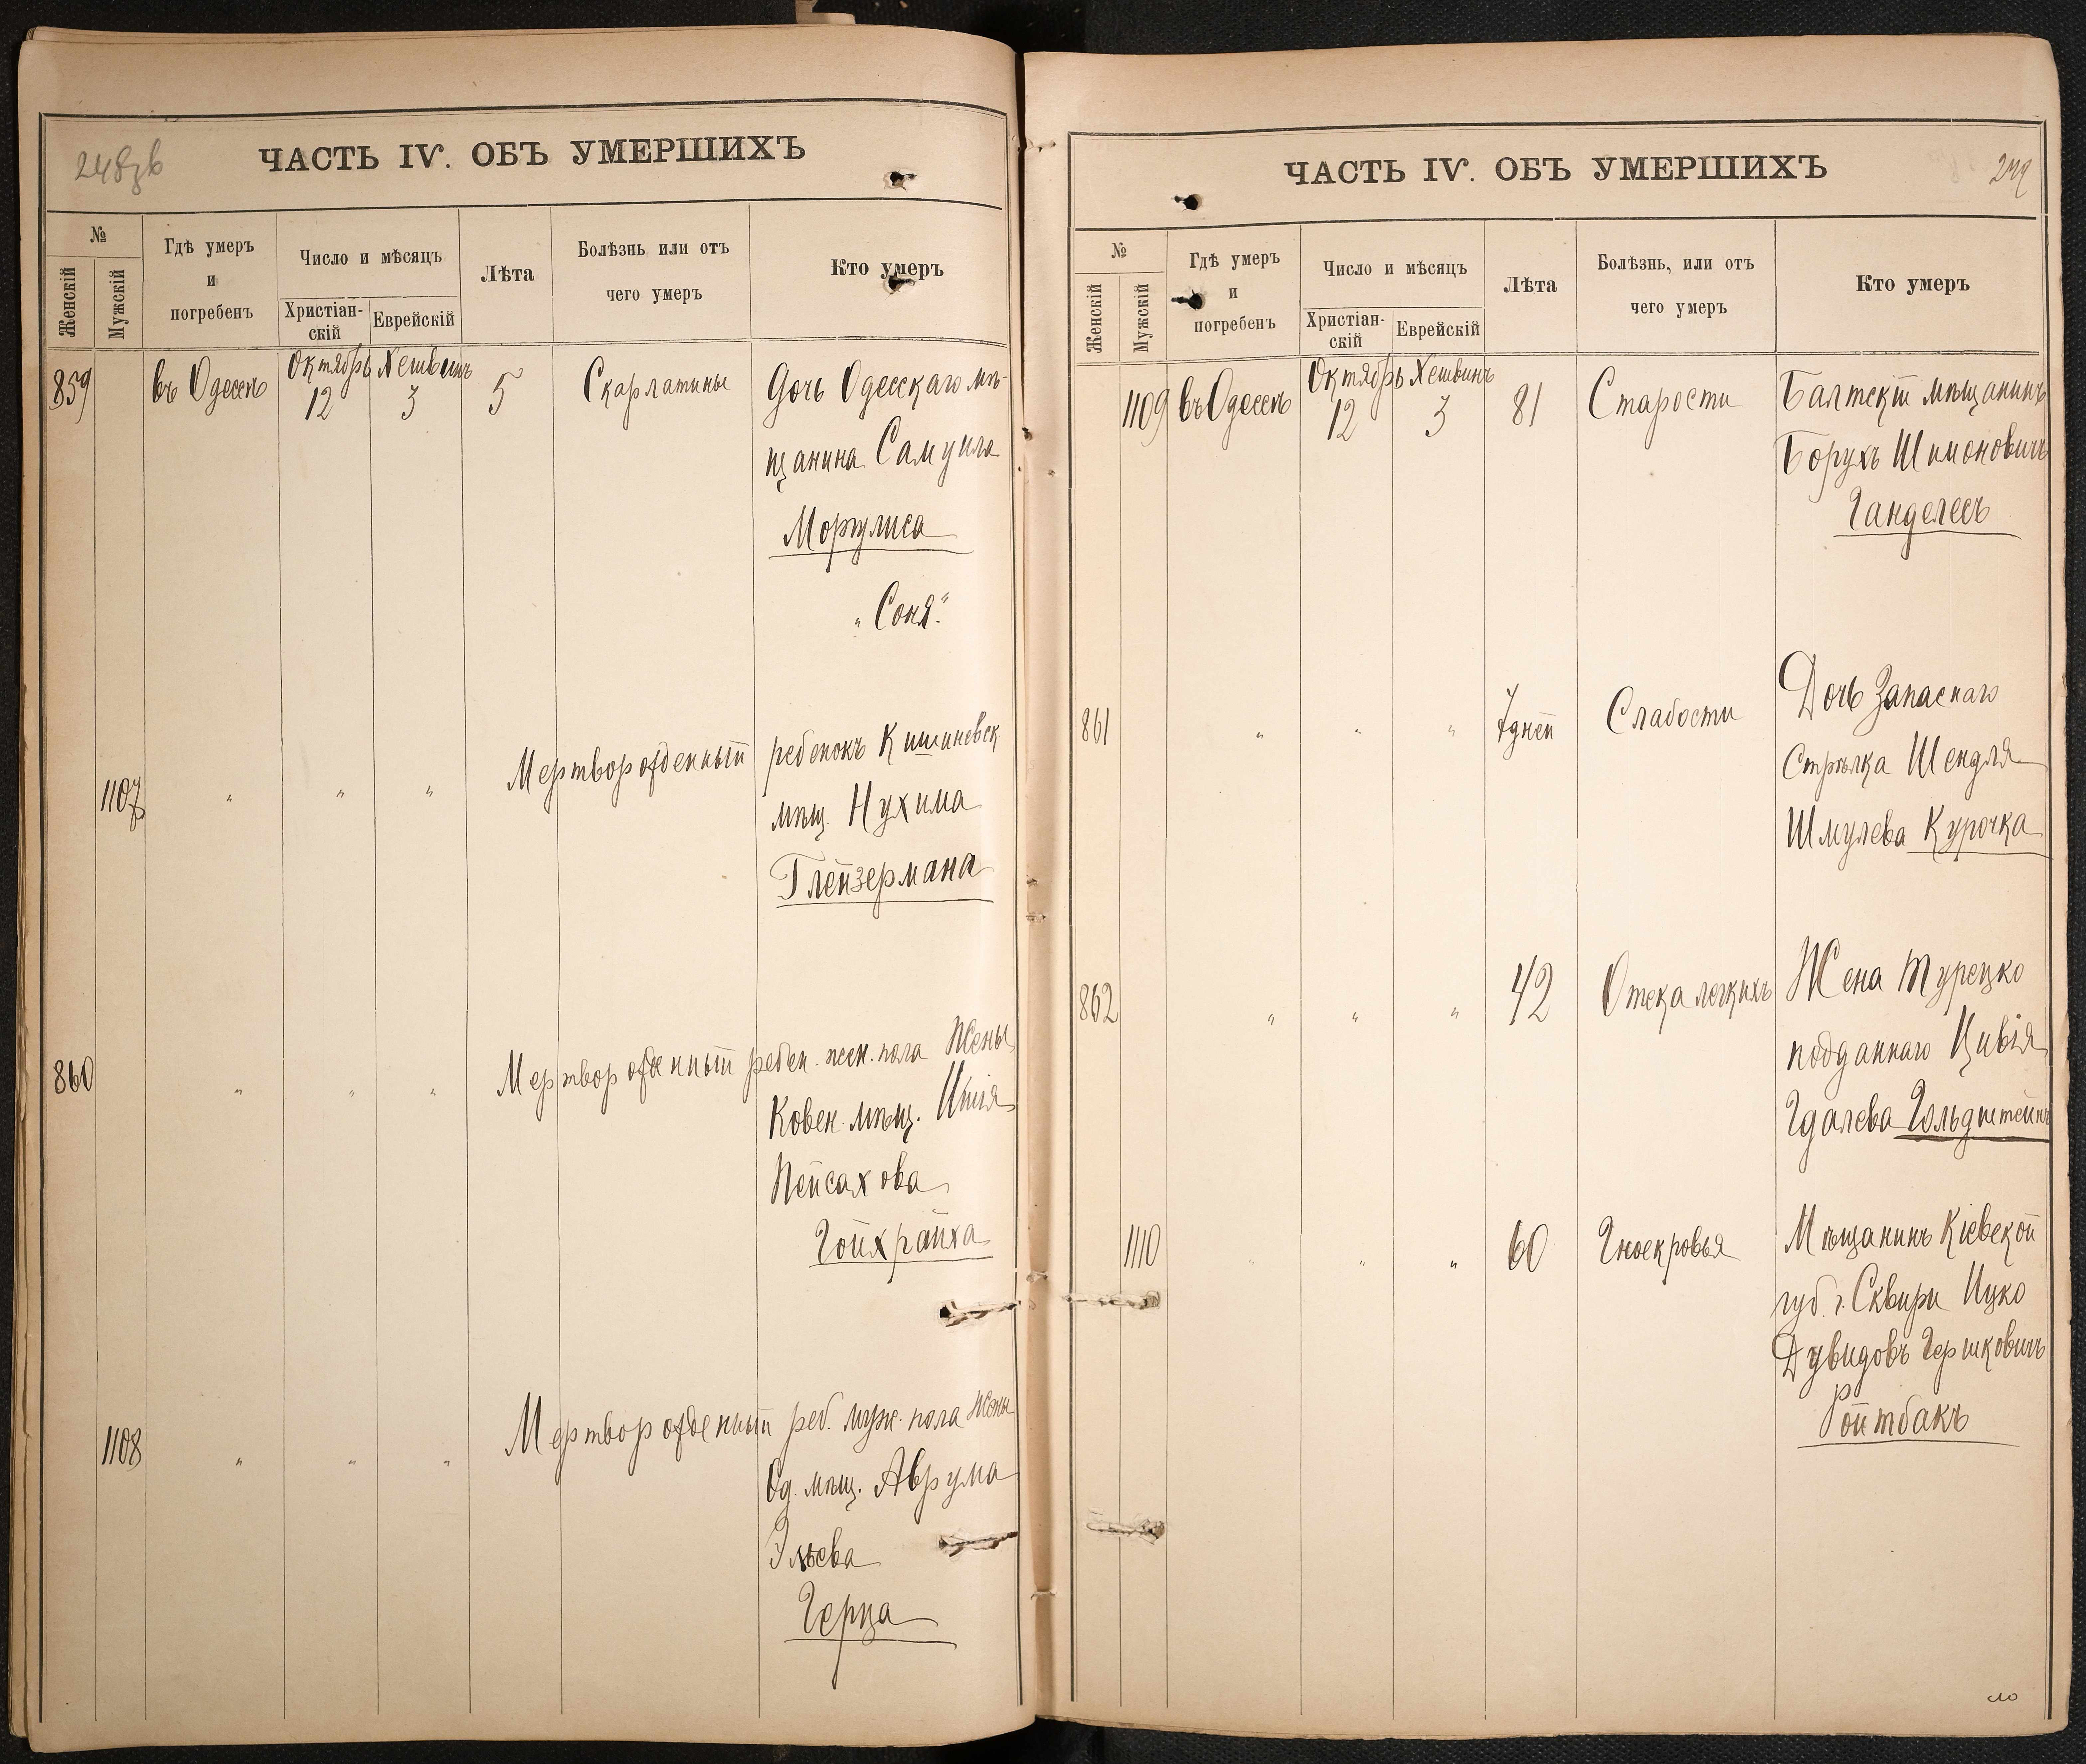 248зв
ЧАСТЬ IV. ОБЪ УМЕРШИХЪ
№
Женскій
Мужскій
Гдѣ умеръ
и
погребенъ
Число и мѣсяцъ
Христіан-
скій
Еврейскій
Лѣта
Болѣзнь или отъ
чего умеръ
Кто умеръ
859 въ Одессѣ Октябрь 12 Хешвинъ 3 5 Скарлатины Дочь Одесскаго мѣ-
щанина Самуила
Моргулиса
„Соня“
1107 „ „ „ Мертворожденный ребенокъ Кишиневск
мѣщ. Нухима
Глейзермана
860 „ „ „ Мертворожденный ребен. жен. пола Жены
Ковен. мѣщ.
Пейсахова
Гойхрайха
1108 „ „ „ Мертворожденный реб. муж. пола Жены
Од. мѣщ. Аврума
Эльева
Герца
ЧАСТЬ IV. ОБЪ УМЕРШИХЪ
249
№
Женскій
Мужскій
Гдѣ умеръ
и
погребенъ
Число и мѣсяцъ
Христіан-
скій
Еврейскій
Лѣта
Болѣзнь, или отъ
чего умеръ
Кто умеръ
1109 въ Одессѣ Октябрь 12 Хешвинъ 3 81 Старости Балтскій мѣщанинъ
Борухъ Шимоновичъ
Ганделесъ
861 „ „ „ 7 дней Слабости Дочь Запаснаго
Стрѣлка Шендля
Шмулева Курочка
862 „ „ „ 42 Отека легкихъ Жена турецко
подданнаго Цивія
Гдалева Гольдштейнъ
1110 „ „ „ 60 Гноекровья Мѣщанинъ Кіевской
губ. г. Сквири Ицко
Дувидовъ Гершковичъ
Ройтбакъ